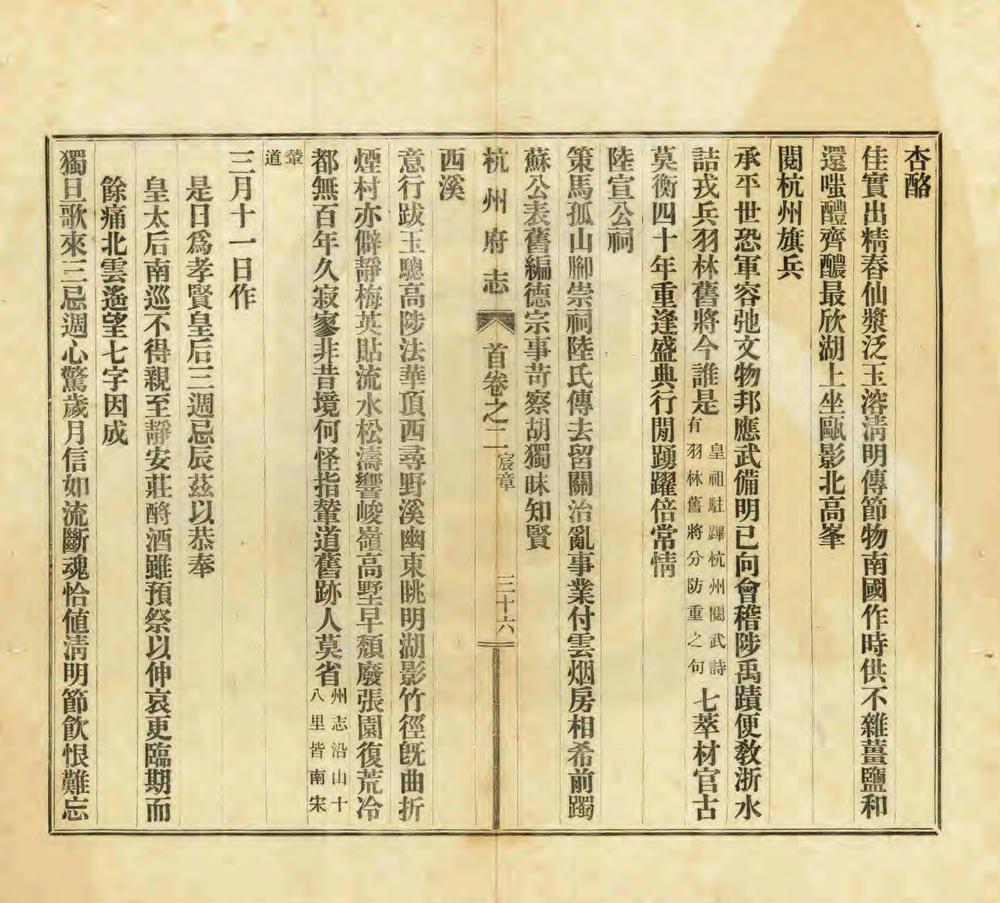 杏酪
佳實出精舂仙漿泛玉溶淸明傳節物南國作時供不雜薑鹽和
還嗤醴齊醲最欣湖上坐甌影北高峯
閱杭州旗兵
承平世恐軍容弛文物邦應武備明已向會稽陟禹蹟便敎浙水
詰戎兵羽林舊將今誰是皇祖駐蹕杭州閱武詩有羽林舊將分防重之句七萃材官古
莫衡四十年重逢盛典行閒踴躍倍常情
陸宣公祠
策馬孤山腳崇祠陸氏傳去留關治亂事業付雲烟房相希前躅
蘇公表舊編德宗事苛察胡獨昧知賢
杭州府志 首卷之二 宸章 三十六
西溪
意行跋玉驄高陟法華頂西尋野溪幽東眺明湖影竹徑旣曲折
煙村亦僻靜梅英貼流水松濤響峻嶺高墅早頹廢張園復荒冷
都無百年久寂寥非昔境何怪指輦道舊跡人莫省州志沿山十八里皆南宋
輦道
三月十一日作
是日爲孝賢皇后三週忌辰茲以恭奉
皇太后南巡不得親至靜安莊酹酒雖預祭以伸哀更臨期而
餘痛北雲遙望七字因成
獨旦歌來三忌週心驚歲月信如流斷魂恰値淸明節飮恨難忘